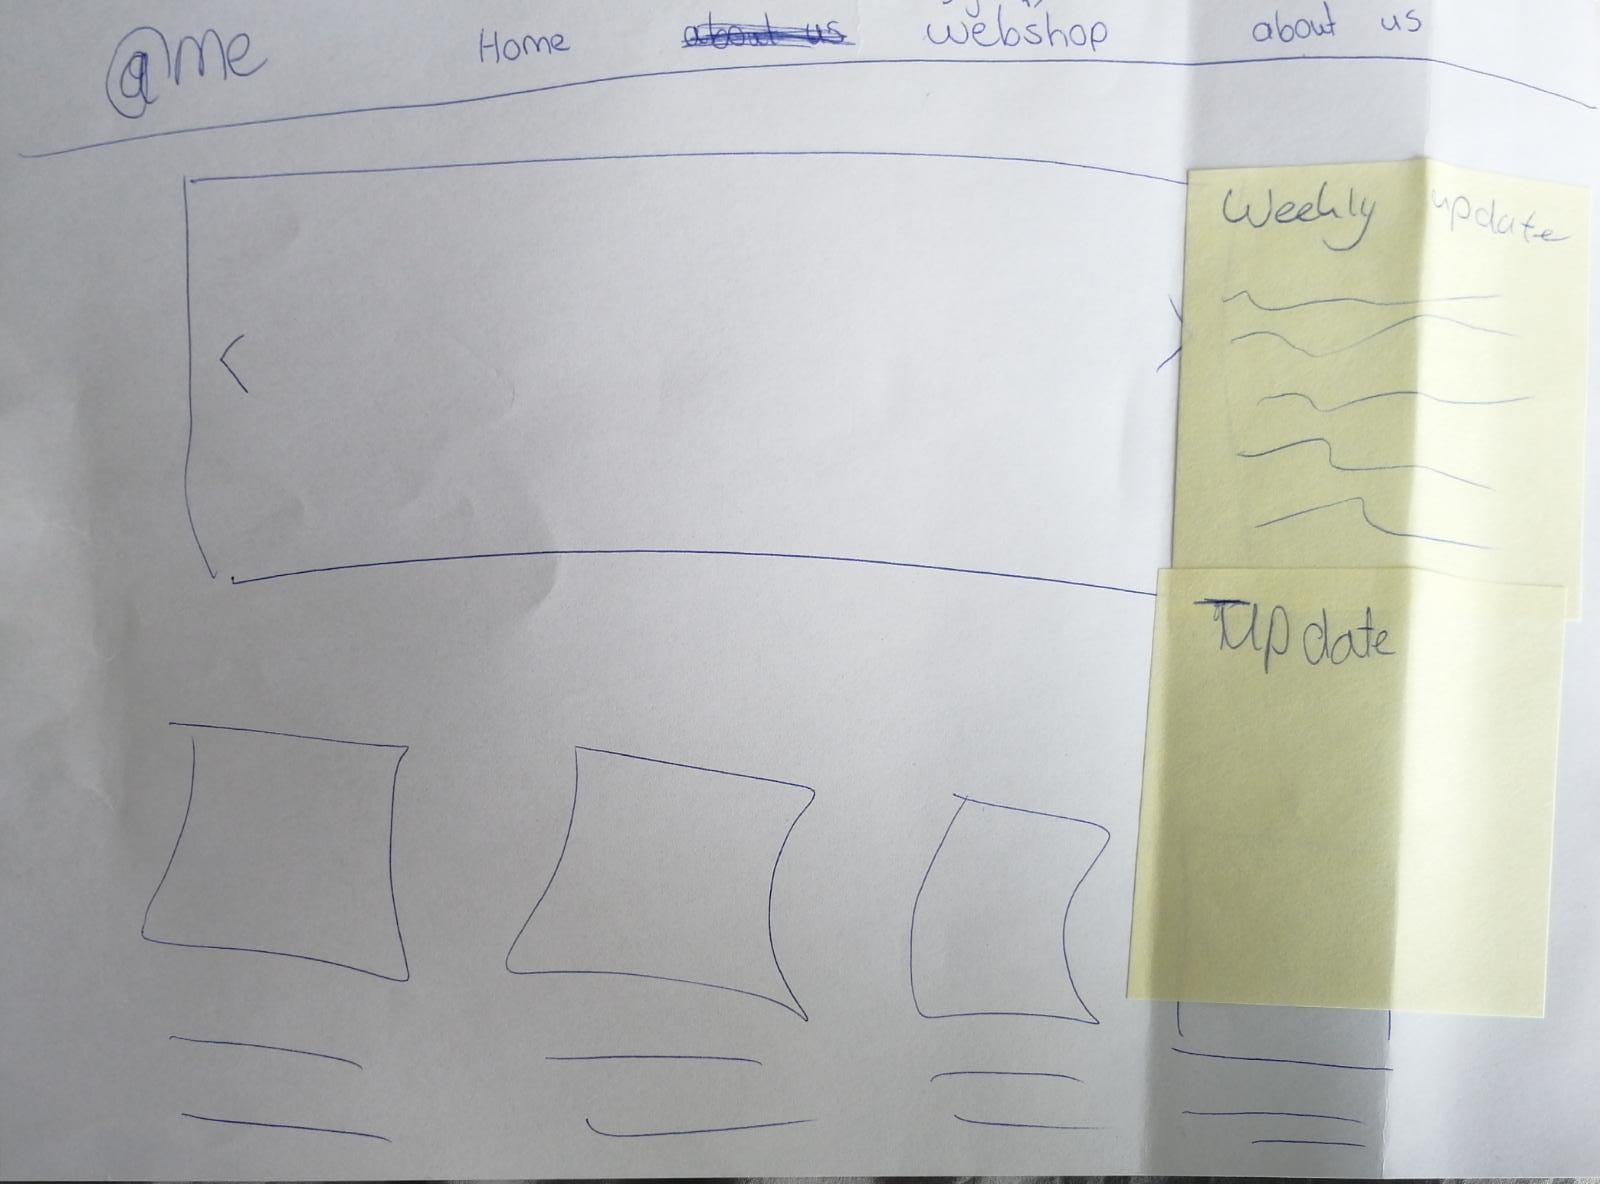 @me Home about us webshop about us
Weekly update
Update